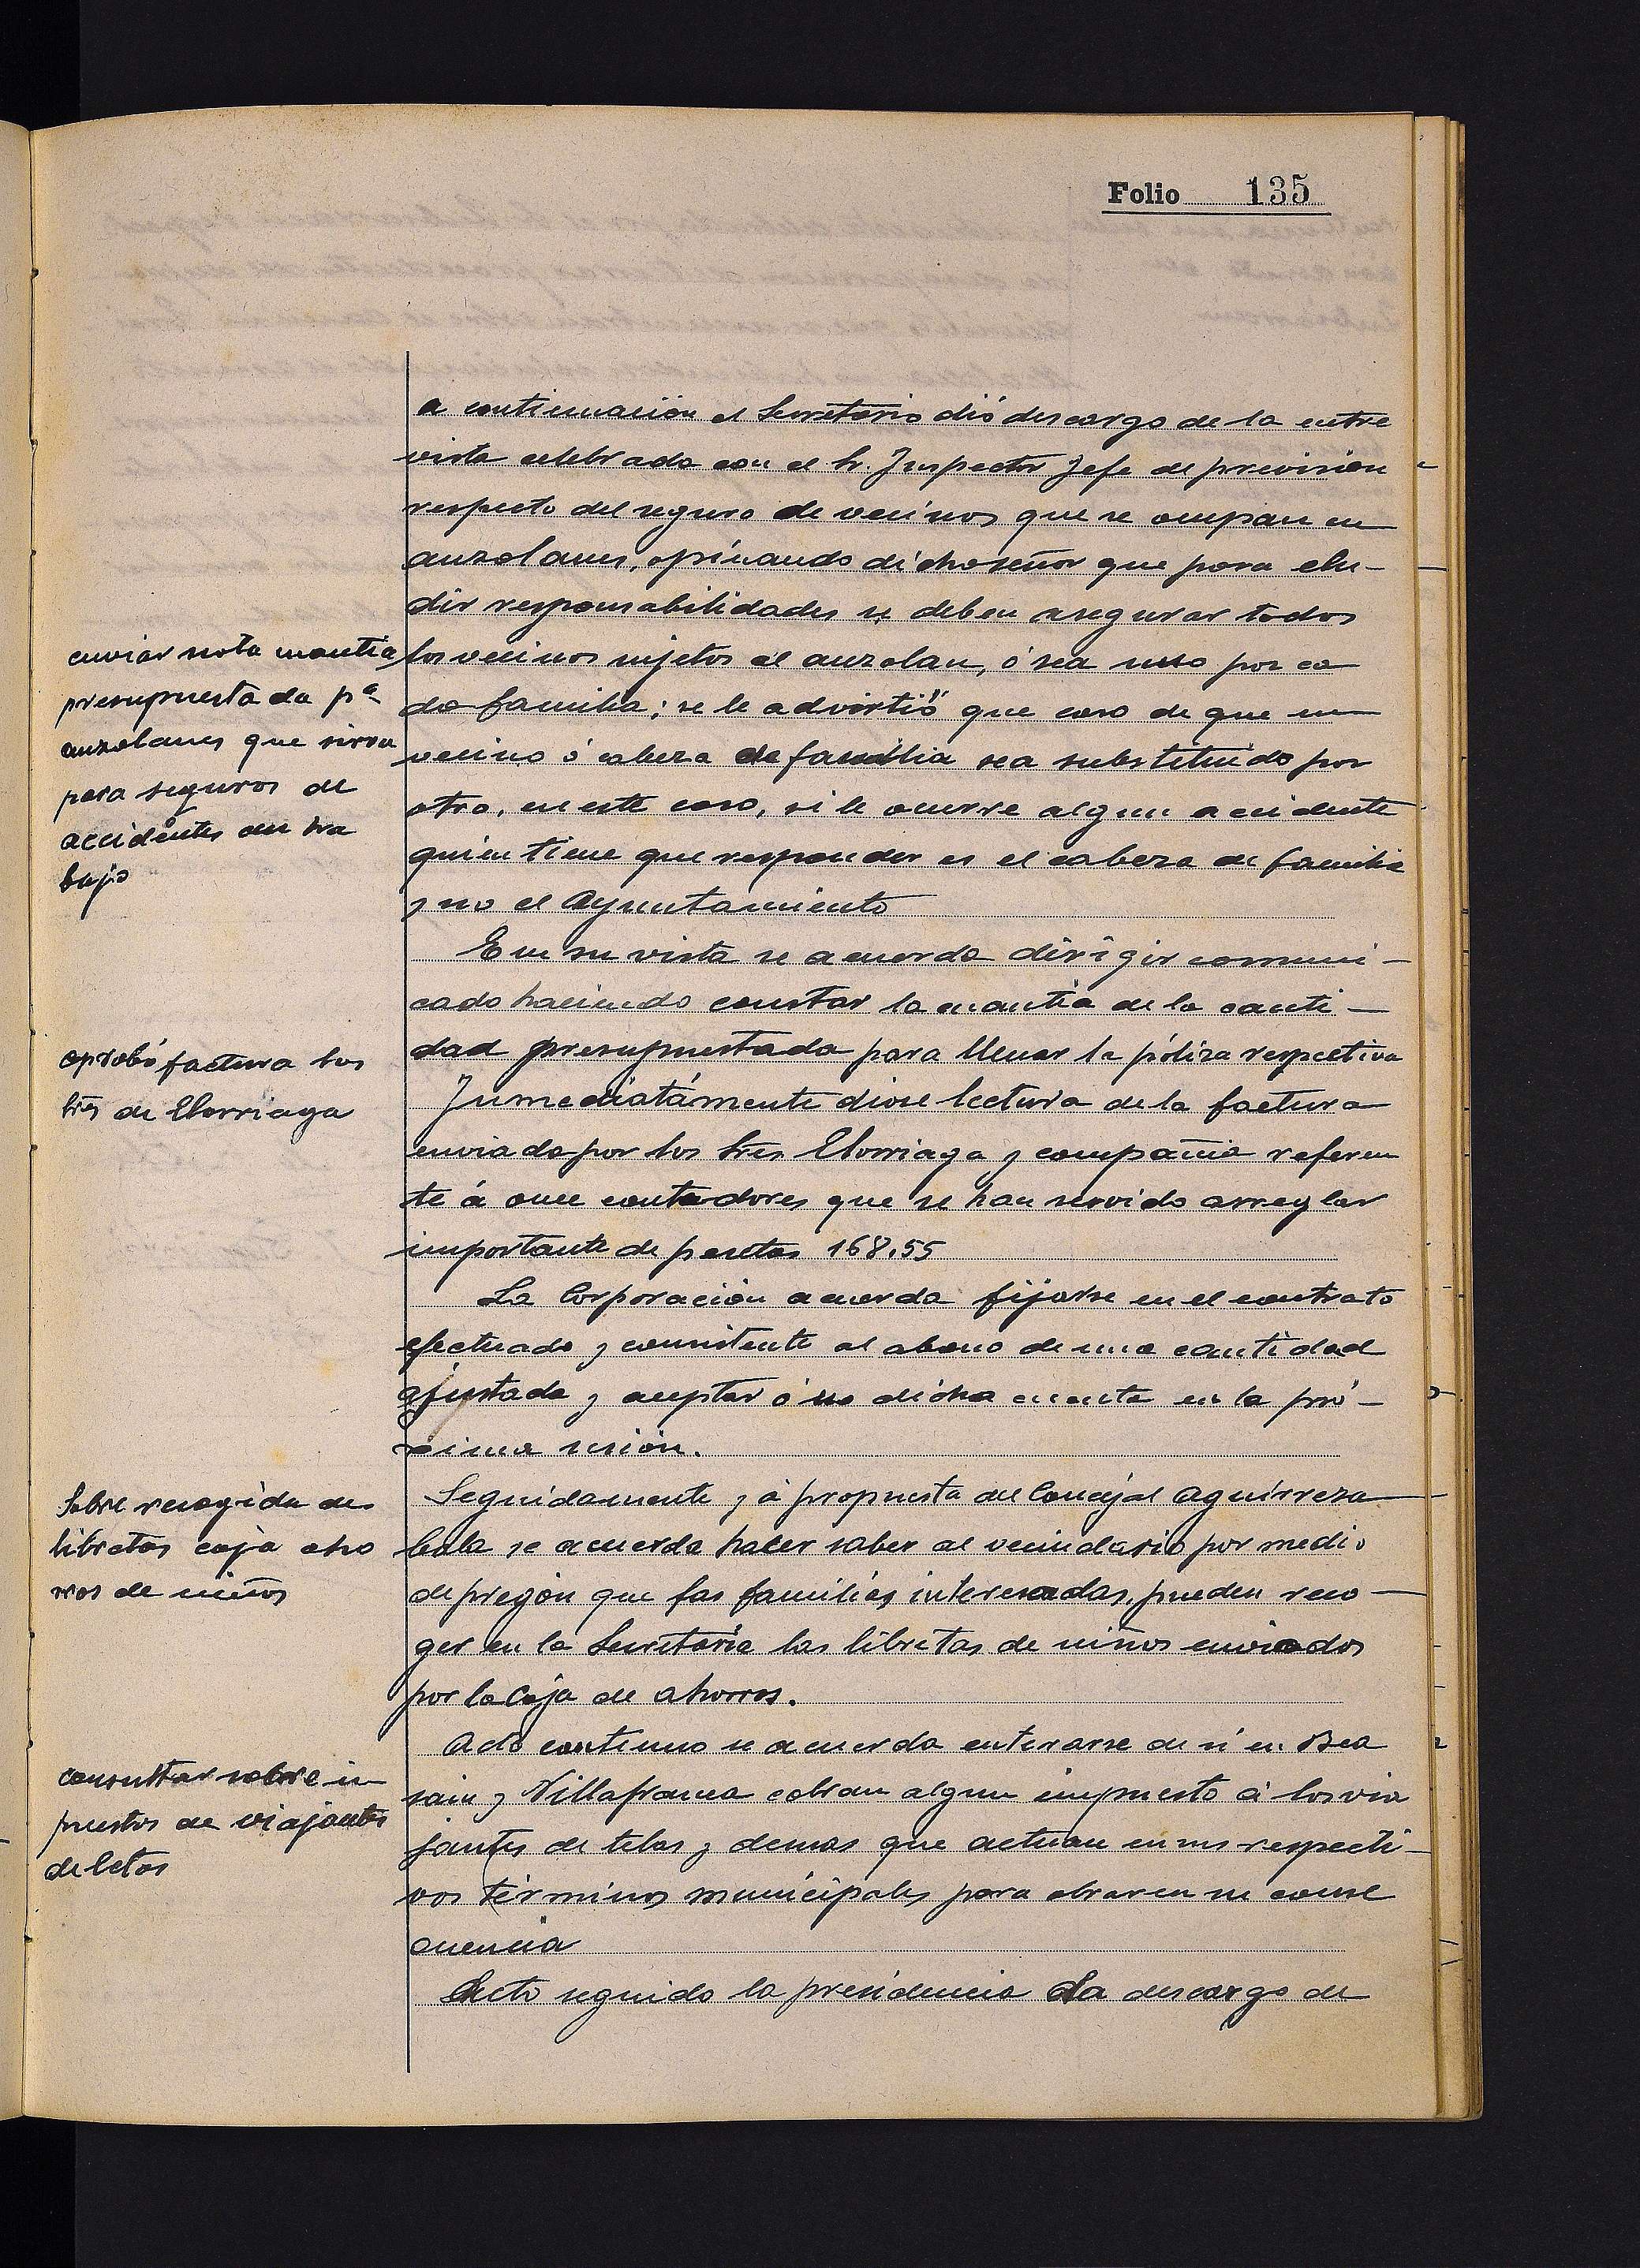 Folio 135
a continuación el Secretario dió descargo de la entre
vista celebrada con el Sr. Inspector Jefe de prevision
respecto del seguro de vecinos que se ocupan en
auzolanes, opinando dicho señor que para elu-
dir responsabilidades se deben asegurar todos
los vecinos sujetos al auzolan, ó sea uno por ca
da familia; se le advirtió que caso de que un
vecino ó cabeza de familia sea substituido por
otro, en este caso, si le ocurre algun accidente
quien tiene que responder es el cabeza de familia
y no el Ayuntamiento
enviar nota cuantia
presupuestada pª
auzolanes que sirva
para seguros de
accidentes del tra
bajo
En su vista se acuerda dirigir comuni-
cado haciendo constar la cuantia de la canti-
dad presupuestada para llenar la póliza respectiva
Inmediatámente dióse lectura de la factura
enviada por los Sres Elorriaga y compañia referen
te á once contadores que se han servido arreglar
importante de pesetas 168,55
aprobó factura los
Sres de Elorriaga
La Corporación acuerda fijarse en el contrato
efectuado y consistente al abono de una cantidad
ajustada y aceptar ó no dicha cuenta en la pró-
xima sesión.
Seguidamente y á propuesta del Concejal Aguirreza
bala se acuerda hacer saber al vecindario por medio
de pregón que las familias interesadas, pueden reco-
ger en la Secretaria las libretas de niños enviados
por la Caja de ahorros.
Sobre recogida de
libretas caja aho
rros de niños
Acto continuo se acuerda enterarse de si en Bea
sain y Villafranca cobran algun impuesto á los via
jantes de telas y demas que actuan en sus respecti-
vos términos municipales para obrar en su conse
cuencia
consultar sobre im
puestos de viajantes
de letas
Acto seguido la presidencia da descargo de